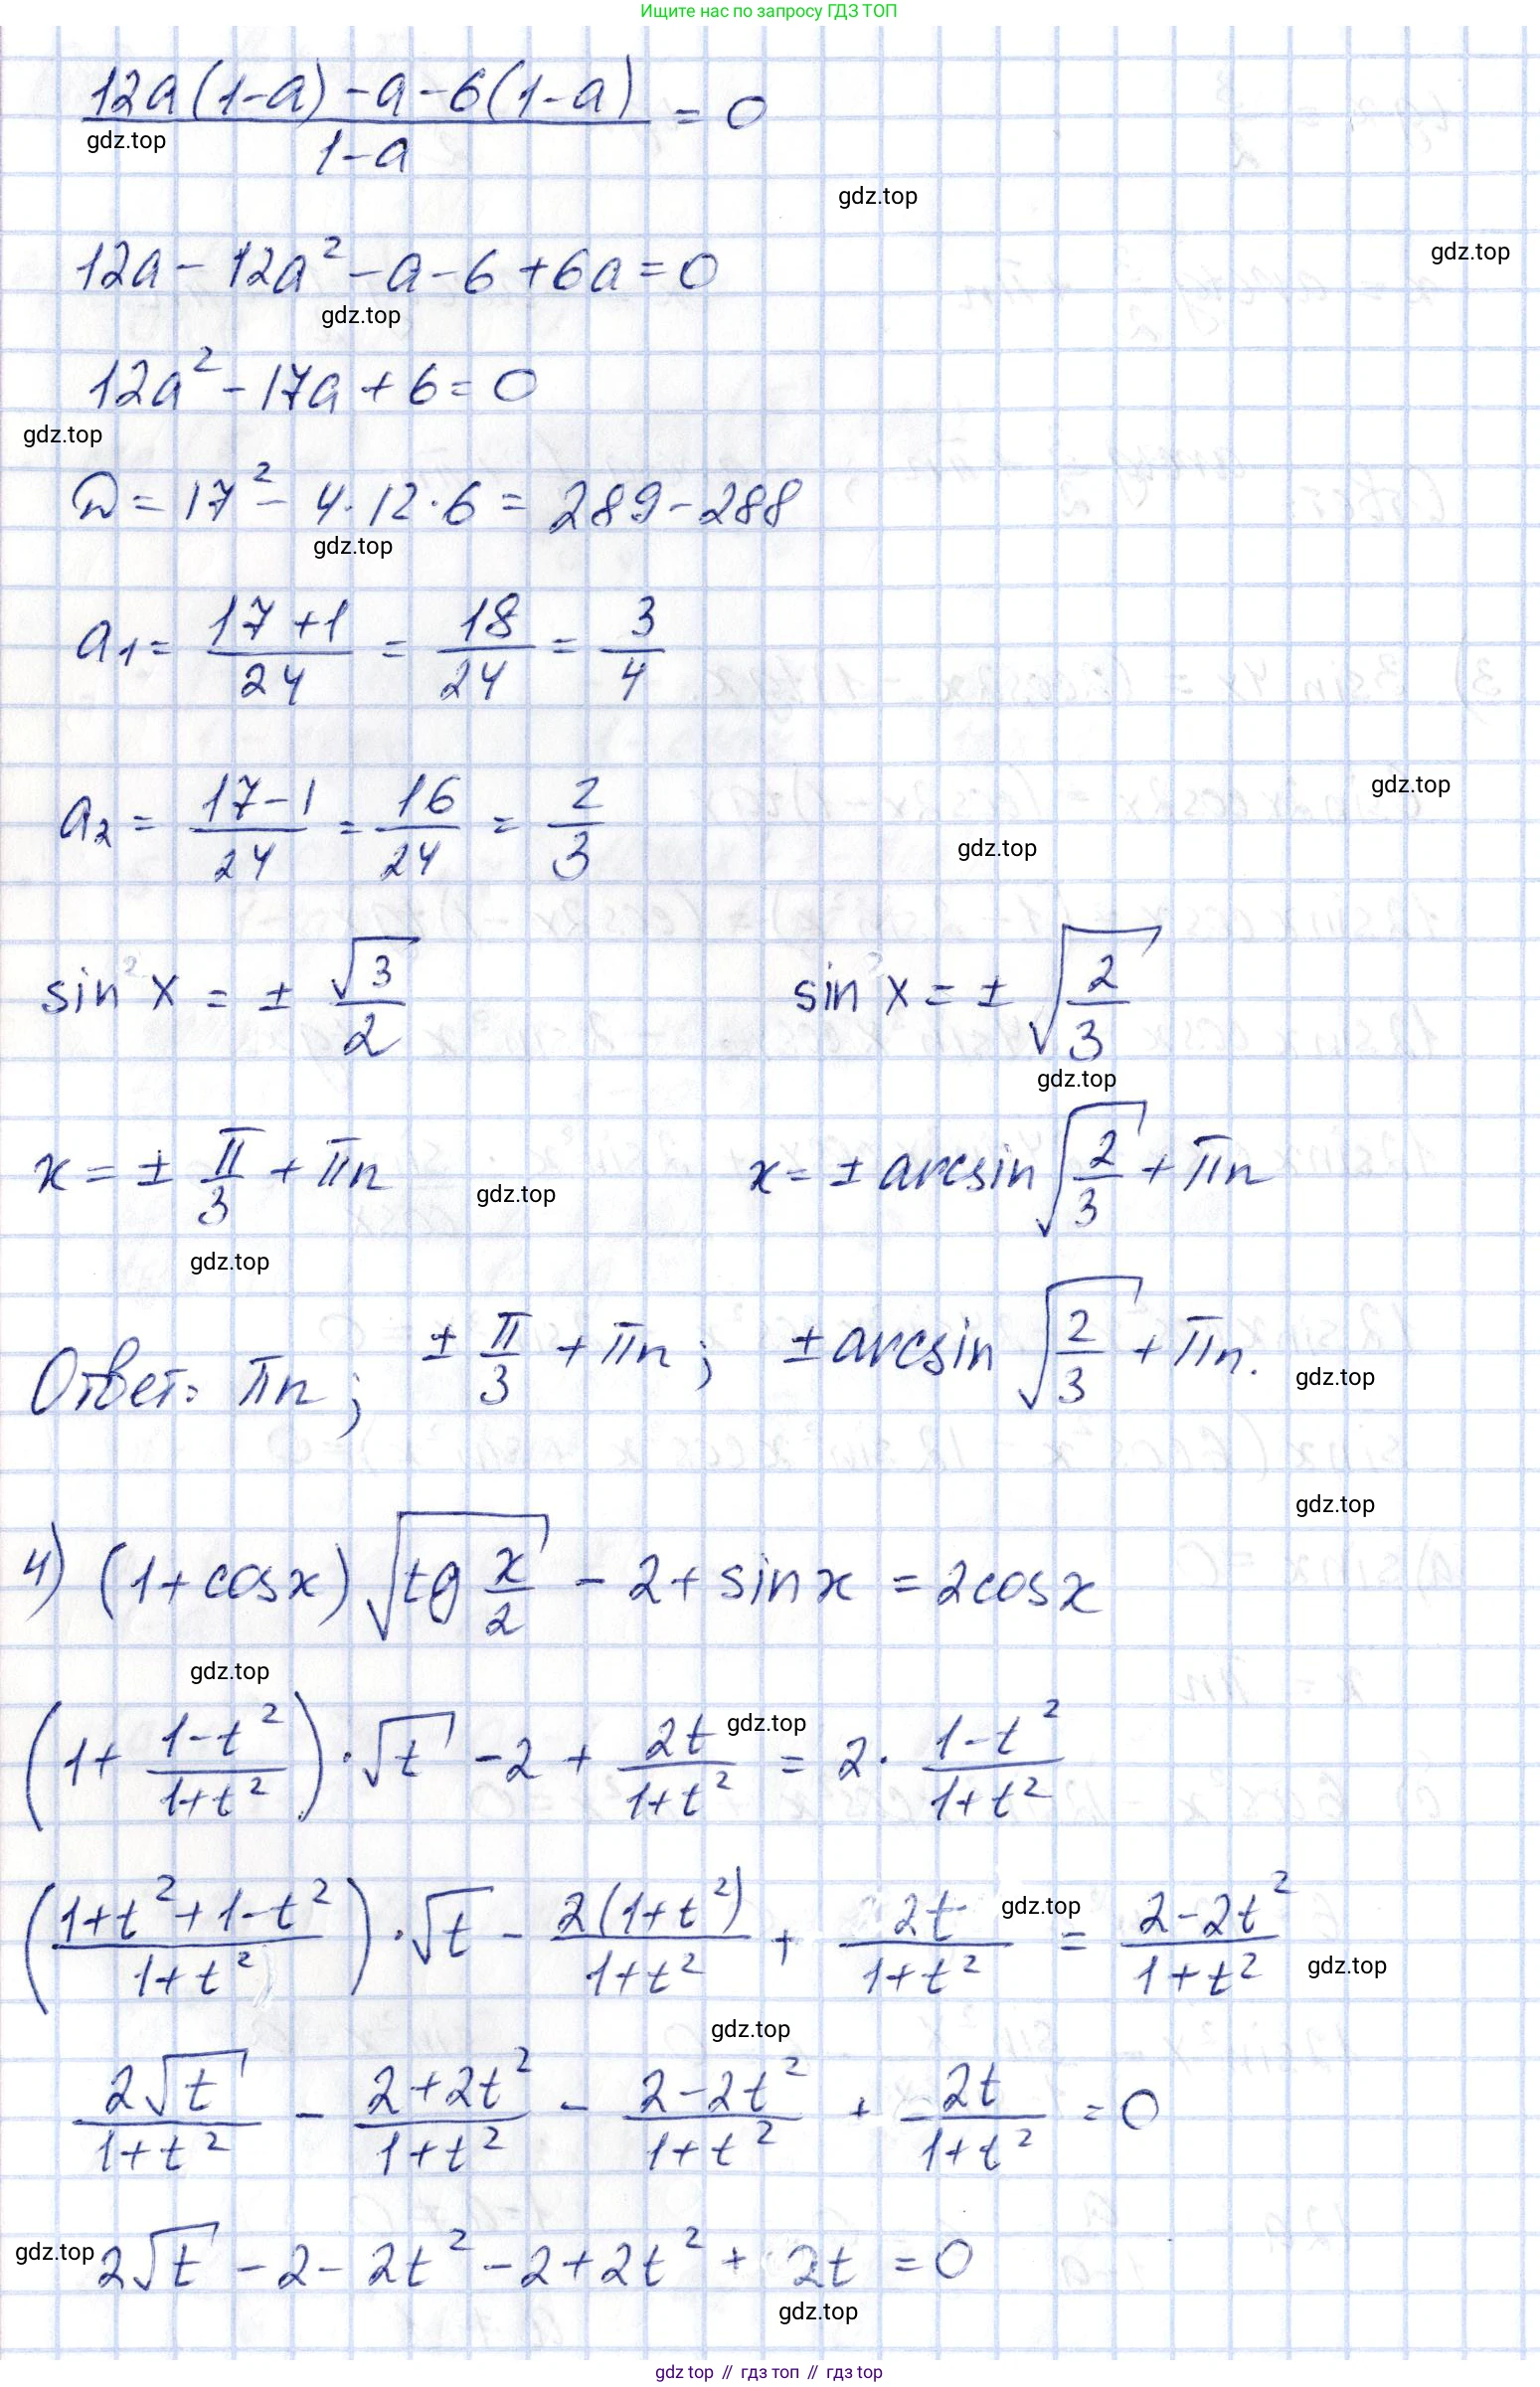 Ищите нас по запросу ГДЗ ТОП
(12a(1-a) - a - 6(1-a))/(1-a) = 0
gdz.top
gdz.top
gdz.top
12a - 12a² - a - 6 + 6a = 0
gdz.top
12a² - 17a + 6 = 0
gdz.top
D = 17² - 4·12·6 = 289 - 288
gdz.top
a₁ = (17+1)/24 = 18/24 = 3/4
gdz.top
a₂ = (17-1)/24 = 16/24 = 2/3
gdz.top
sin x = ± √3/2    sin x = ± √(2/3)
gdz.top
x = ± π/3 + πn    x = ± arcsin √(2/3) + πn
gdz.top
gdz.top
Ответ: πn; ± π/3 + πn; ± arcsin √(2/3) + πn.
gdz.top
gdz.top
4) (1+cosx) √(tg x/2) - 2 + sinx = 2cosx
gdz.top
(1 + (1-t²)/(1+t²)) · √t - 2 + 2t/(1+t²) = 2 · (1-t²)/(1+t²)
gdz.top
((1+t²+1-t²)/(1+t²)) · √t - 2(1+t²)/(1+t²) + 2t/(1+t²) = (2-2t²)/(1+t²)
gdz.top
gdz.top
gdz.top
2√t/(1+t²) - (2+2t²)/(1+t²) - (2-2t²)/(1+t²) + 2t/(1+t²) = 0
gdz.top
2√t - 2 - 2t² - 2 + 2t² + 2t = 0
gdz.top
gdz top // гдз топ // gdz top